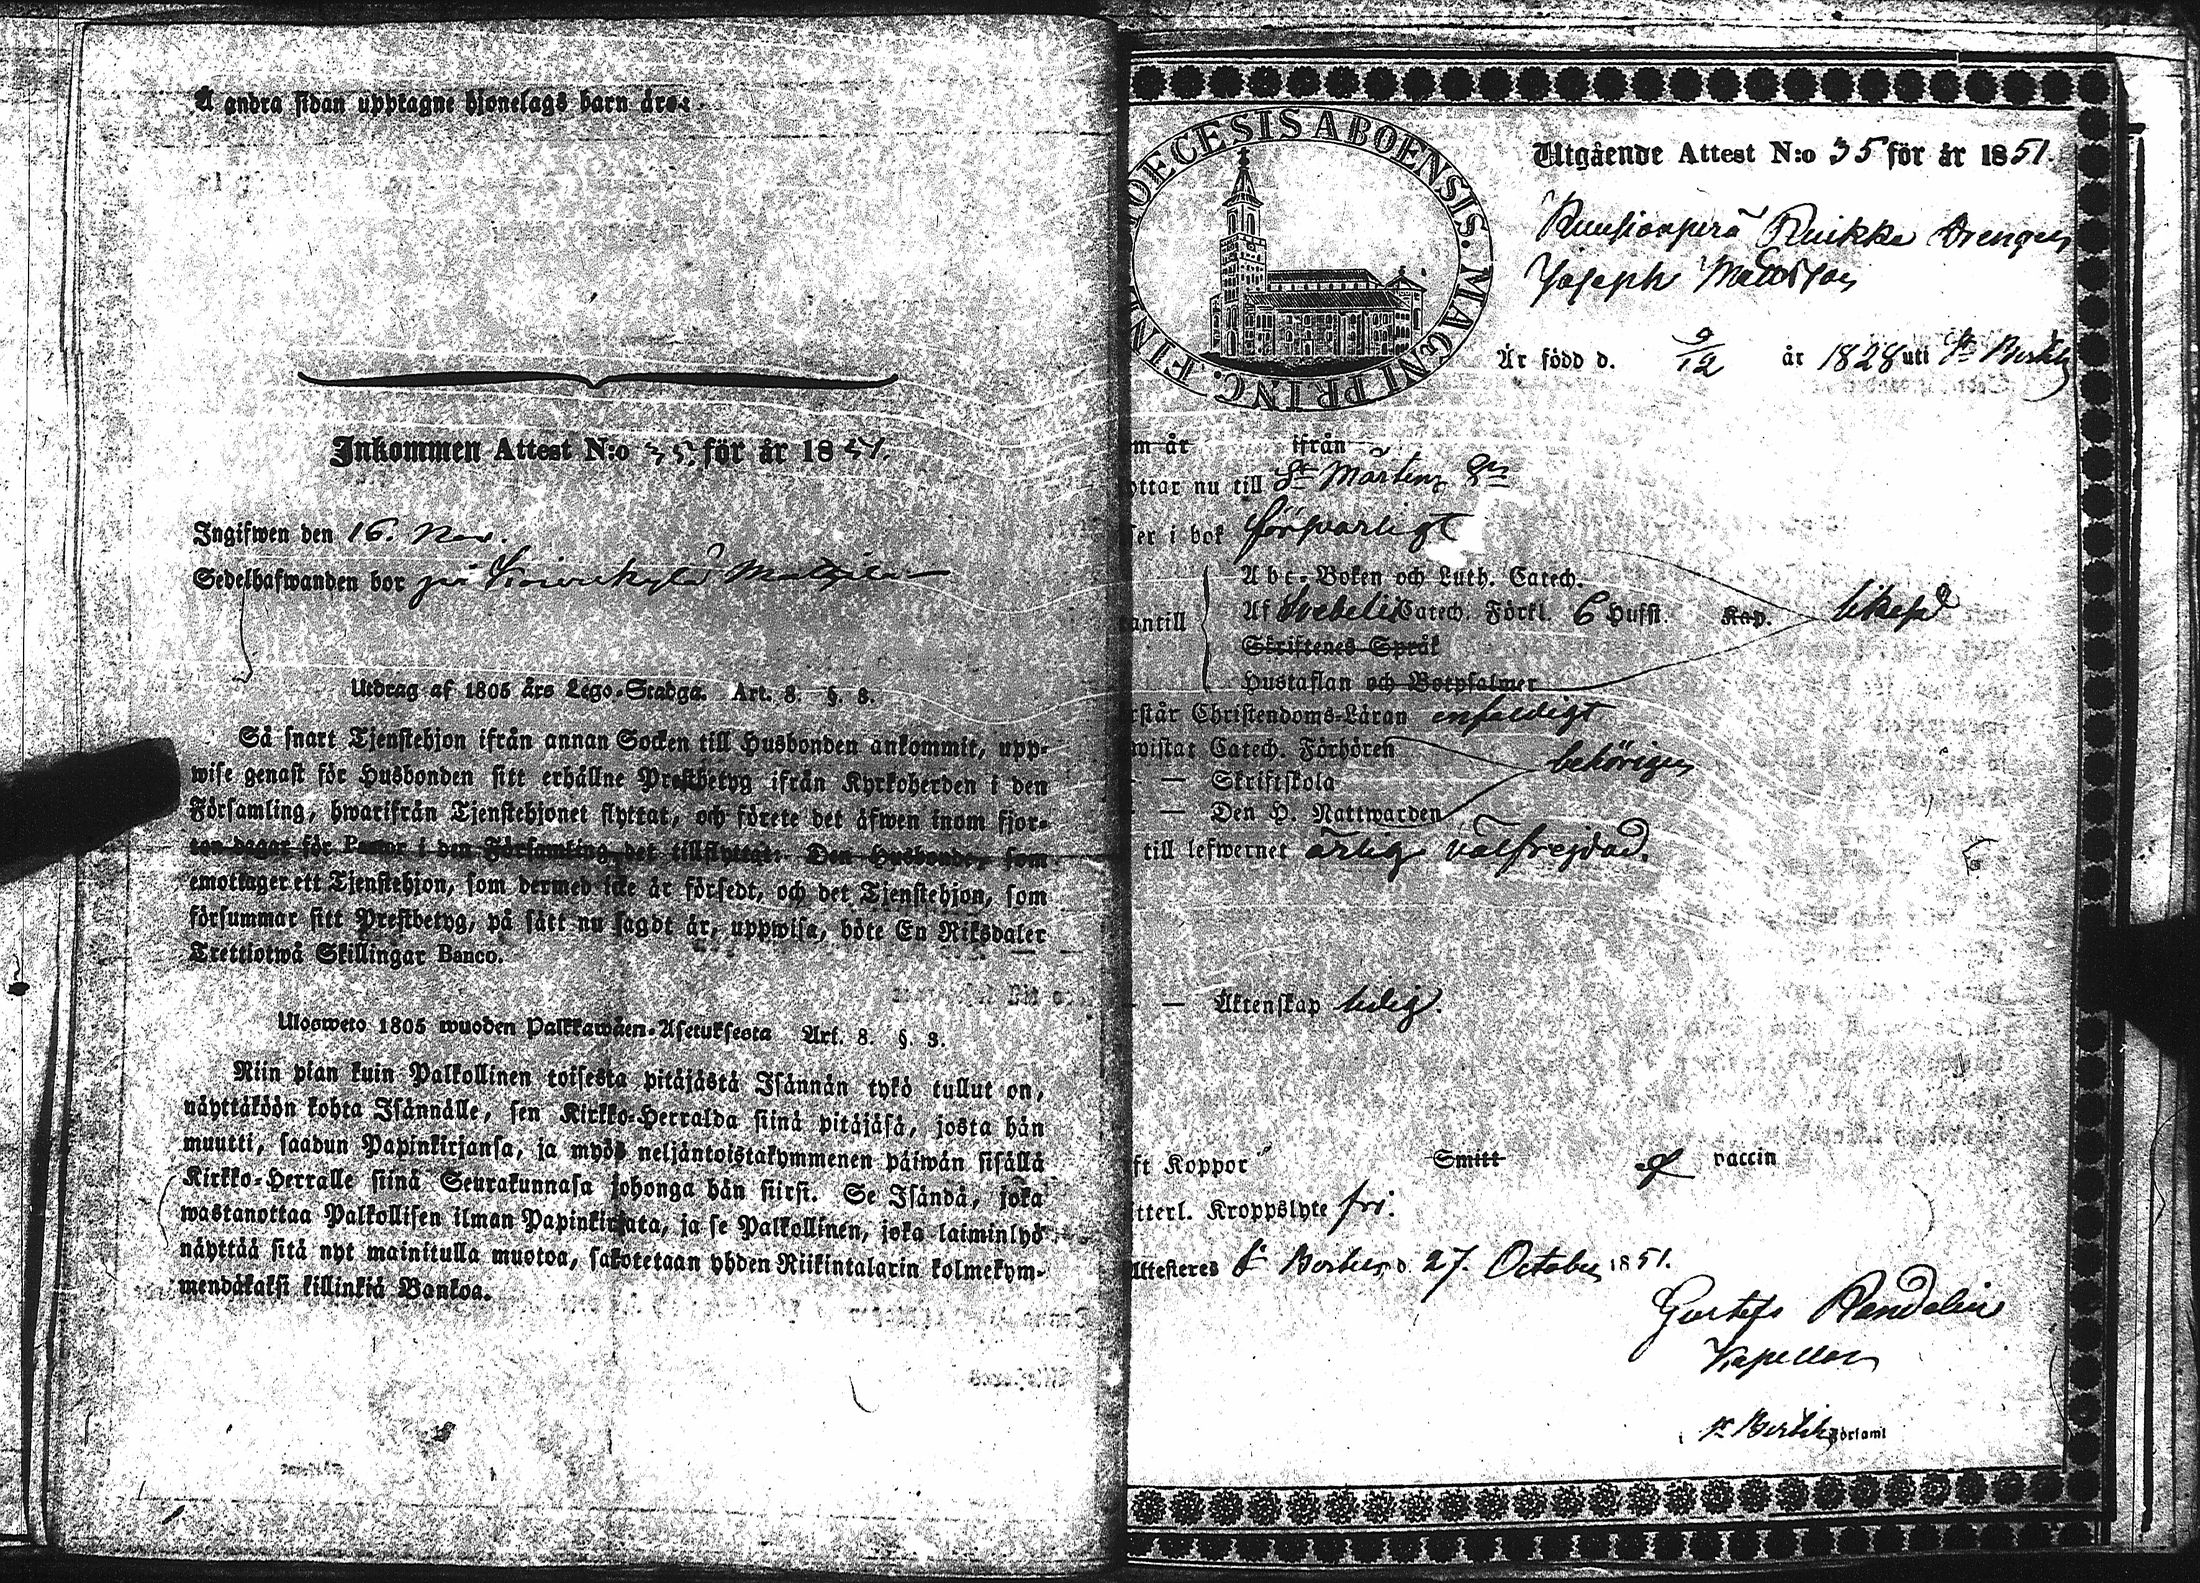 Å andra sidan upptagne hjonelags barn äro:
Inkommen Attest N:o 35. för år 1851.
Ingifwen den 16. Nov.
Sedelhafwanden bor på
Utdrag af 1805 års Lego-Stadga. Art. 8. §. 3.
Så snart Tjenstehjon ifrån annan Socken till Husbonden ankommit, upp-
wise genast för Husbonden sitt erhållne Prestbetyg ifrån Kyrkoherden i den
Församling, hwarifrån Tjenstehjonet flyttat, och förete det äfwen inom fjor-
ton dagar för Pastor i den Församling det tillflyttat: Den Husbonde, som
emottager ett Tjenstehjon, som dermed icke är försedt, och det Tjenstehjon, som
försummar sitt Prestbetyg, på sätt nu sagdt är, uppwisa, böte En Riksdaler
Trettiotwå Skillingar Banco.
Ulosweto 1805 wuoden Palkkawäen-Asetuksesta Art. 8. §. 3.
Niin pian kuin Palkollinen toisesta pitäjästä Isännän tykö tullut on,
näyttäköön kohta Isännälle, sen Kirkko-Herralda siinä pitäjäsä, josta hän
muutti, saadun Papinkirjansa, ja myös neljäntoistakymmenen päiwän sisällä
Kirkko-Herralle siinä Seurakunnasa johonga hän siirsi. Se Isändä, joka
wastanottaa Palkollisen ilman Papinkirjata, ja se Palkollinen, joka laiminlyö
näyttää sitä nyt mainitulla muotoa, sakotetaan yhden Riikintalarin kolmekym-
mendäkaksi killinkiä Bankoa.
DIOECESIS ABOENSIS. MAGNI PRINC. FINL
Utgående Attest N:o 35 för år 1851.
Ruikka Drengen
Joseph Mattsson
Är född d. 9/12 år 1828 uti St Bertils
m år ifrån
ottar nu till St Mårtens
er i bok försvarligt
Abc-Boken och Luth. Catech.
antill Af Svebelii Catech. Förkl. 6 Hufst. Kap.
Skriftenes Språk
Hustaflan och Botpsalmer
rstår Christendoms-Läran enfaldigt
wistat Catech. Förhören behörigen
— — Skriftskola
— — Den H. Nattwarden
till lefwernet ärlig välfrejdad.
— — Äktenskap ledig.
ft Koppor Smitt af vaccin
tterl. Kroppslyte fri.
Attesteres St Bertils d. 27. October 1851.
Gustaf Randelin
Kapellan
i St Bertils Församl